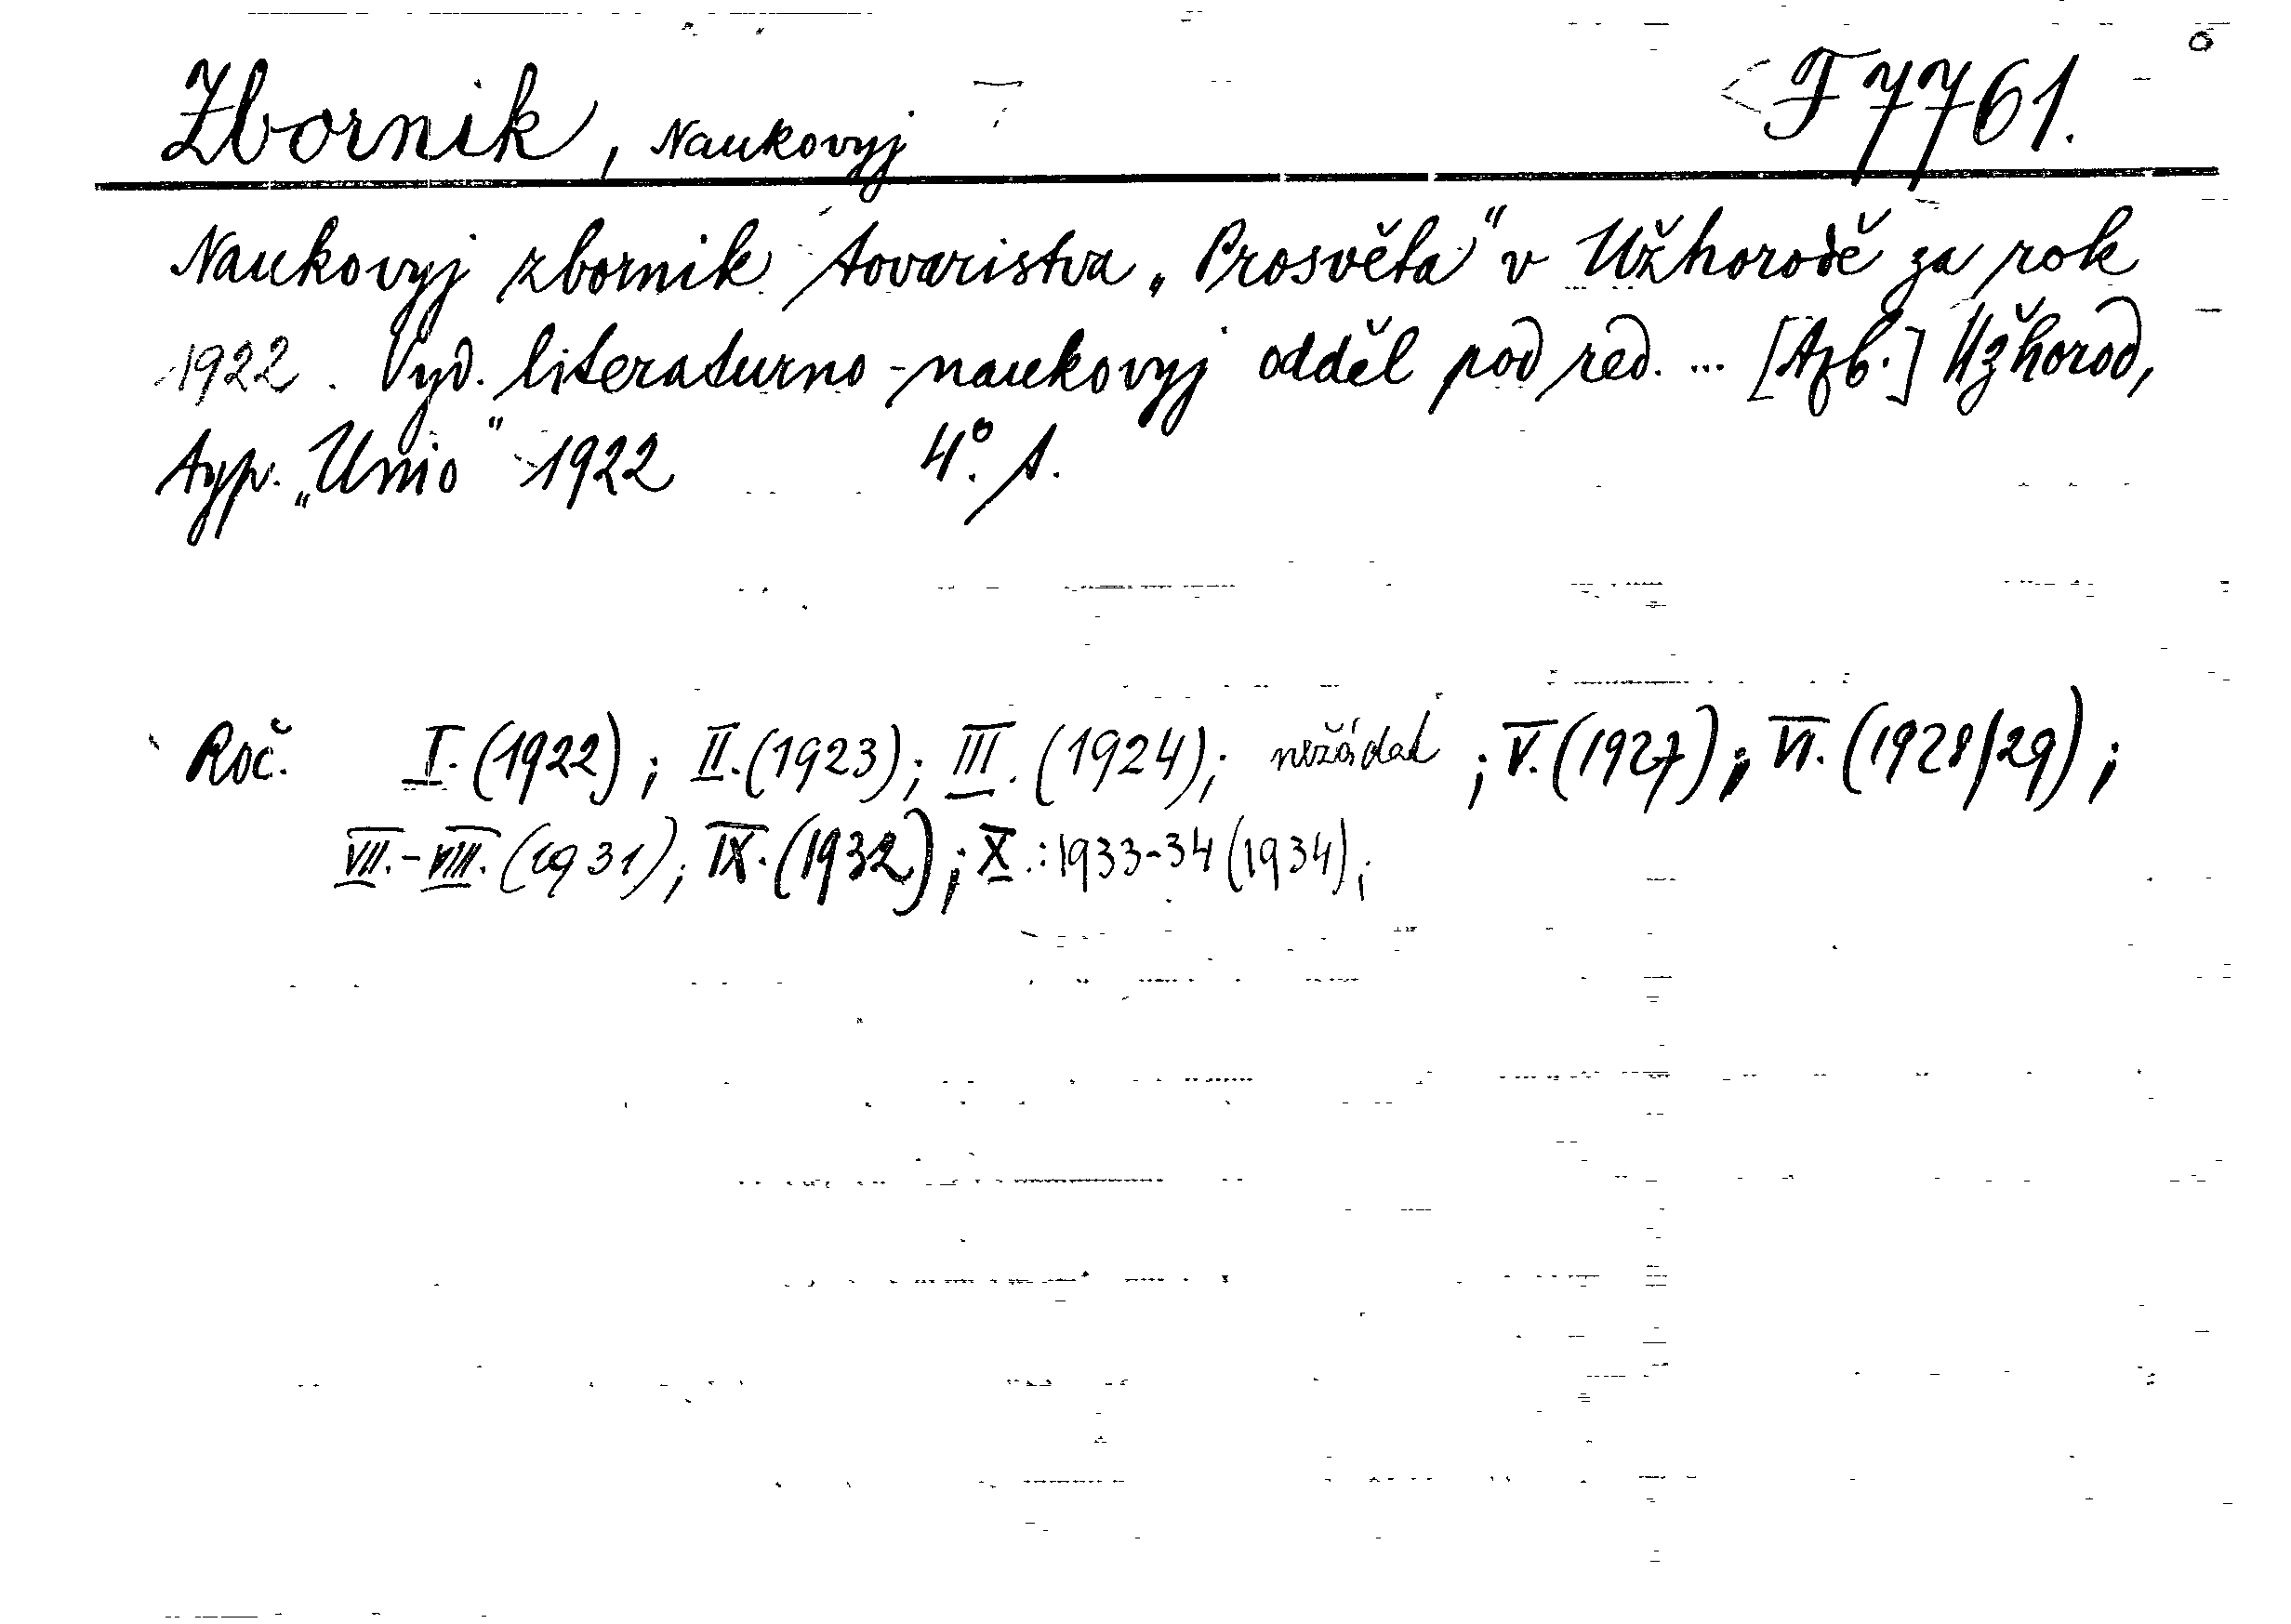 Zbornik, Naukovyj F 7761.
Naukovyj zbornik tovaristva „Prosvěta" v Užhorodě za rok
1922. Vyd. literaturno-naukovyj odděl pod red. ... [Azb.] Užhorod,
typ. „Unio" 1922 4°. s.
Roč. I. (1922); II. (1923); III. (1924); nežádat ; V. (1927); VI. (1928/29);
VII.-VIII. (1931); IX. (1932); X.: 1933-34 (1934);